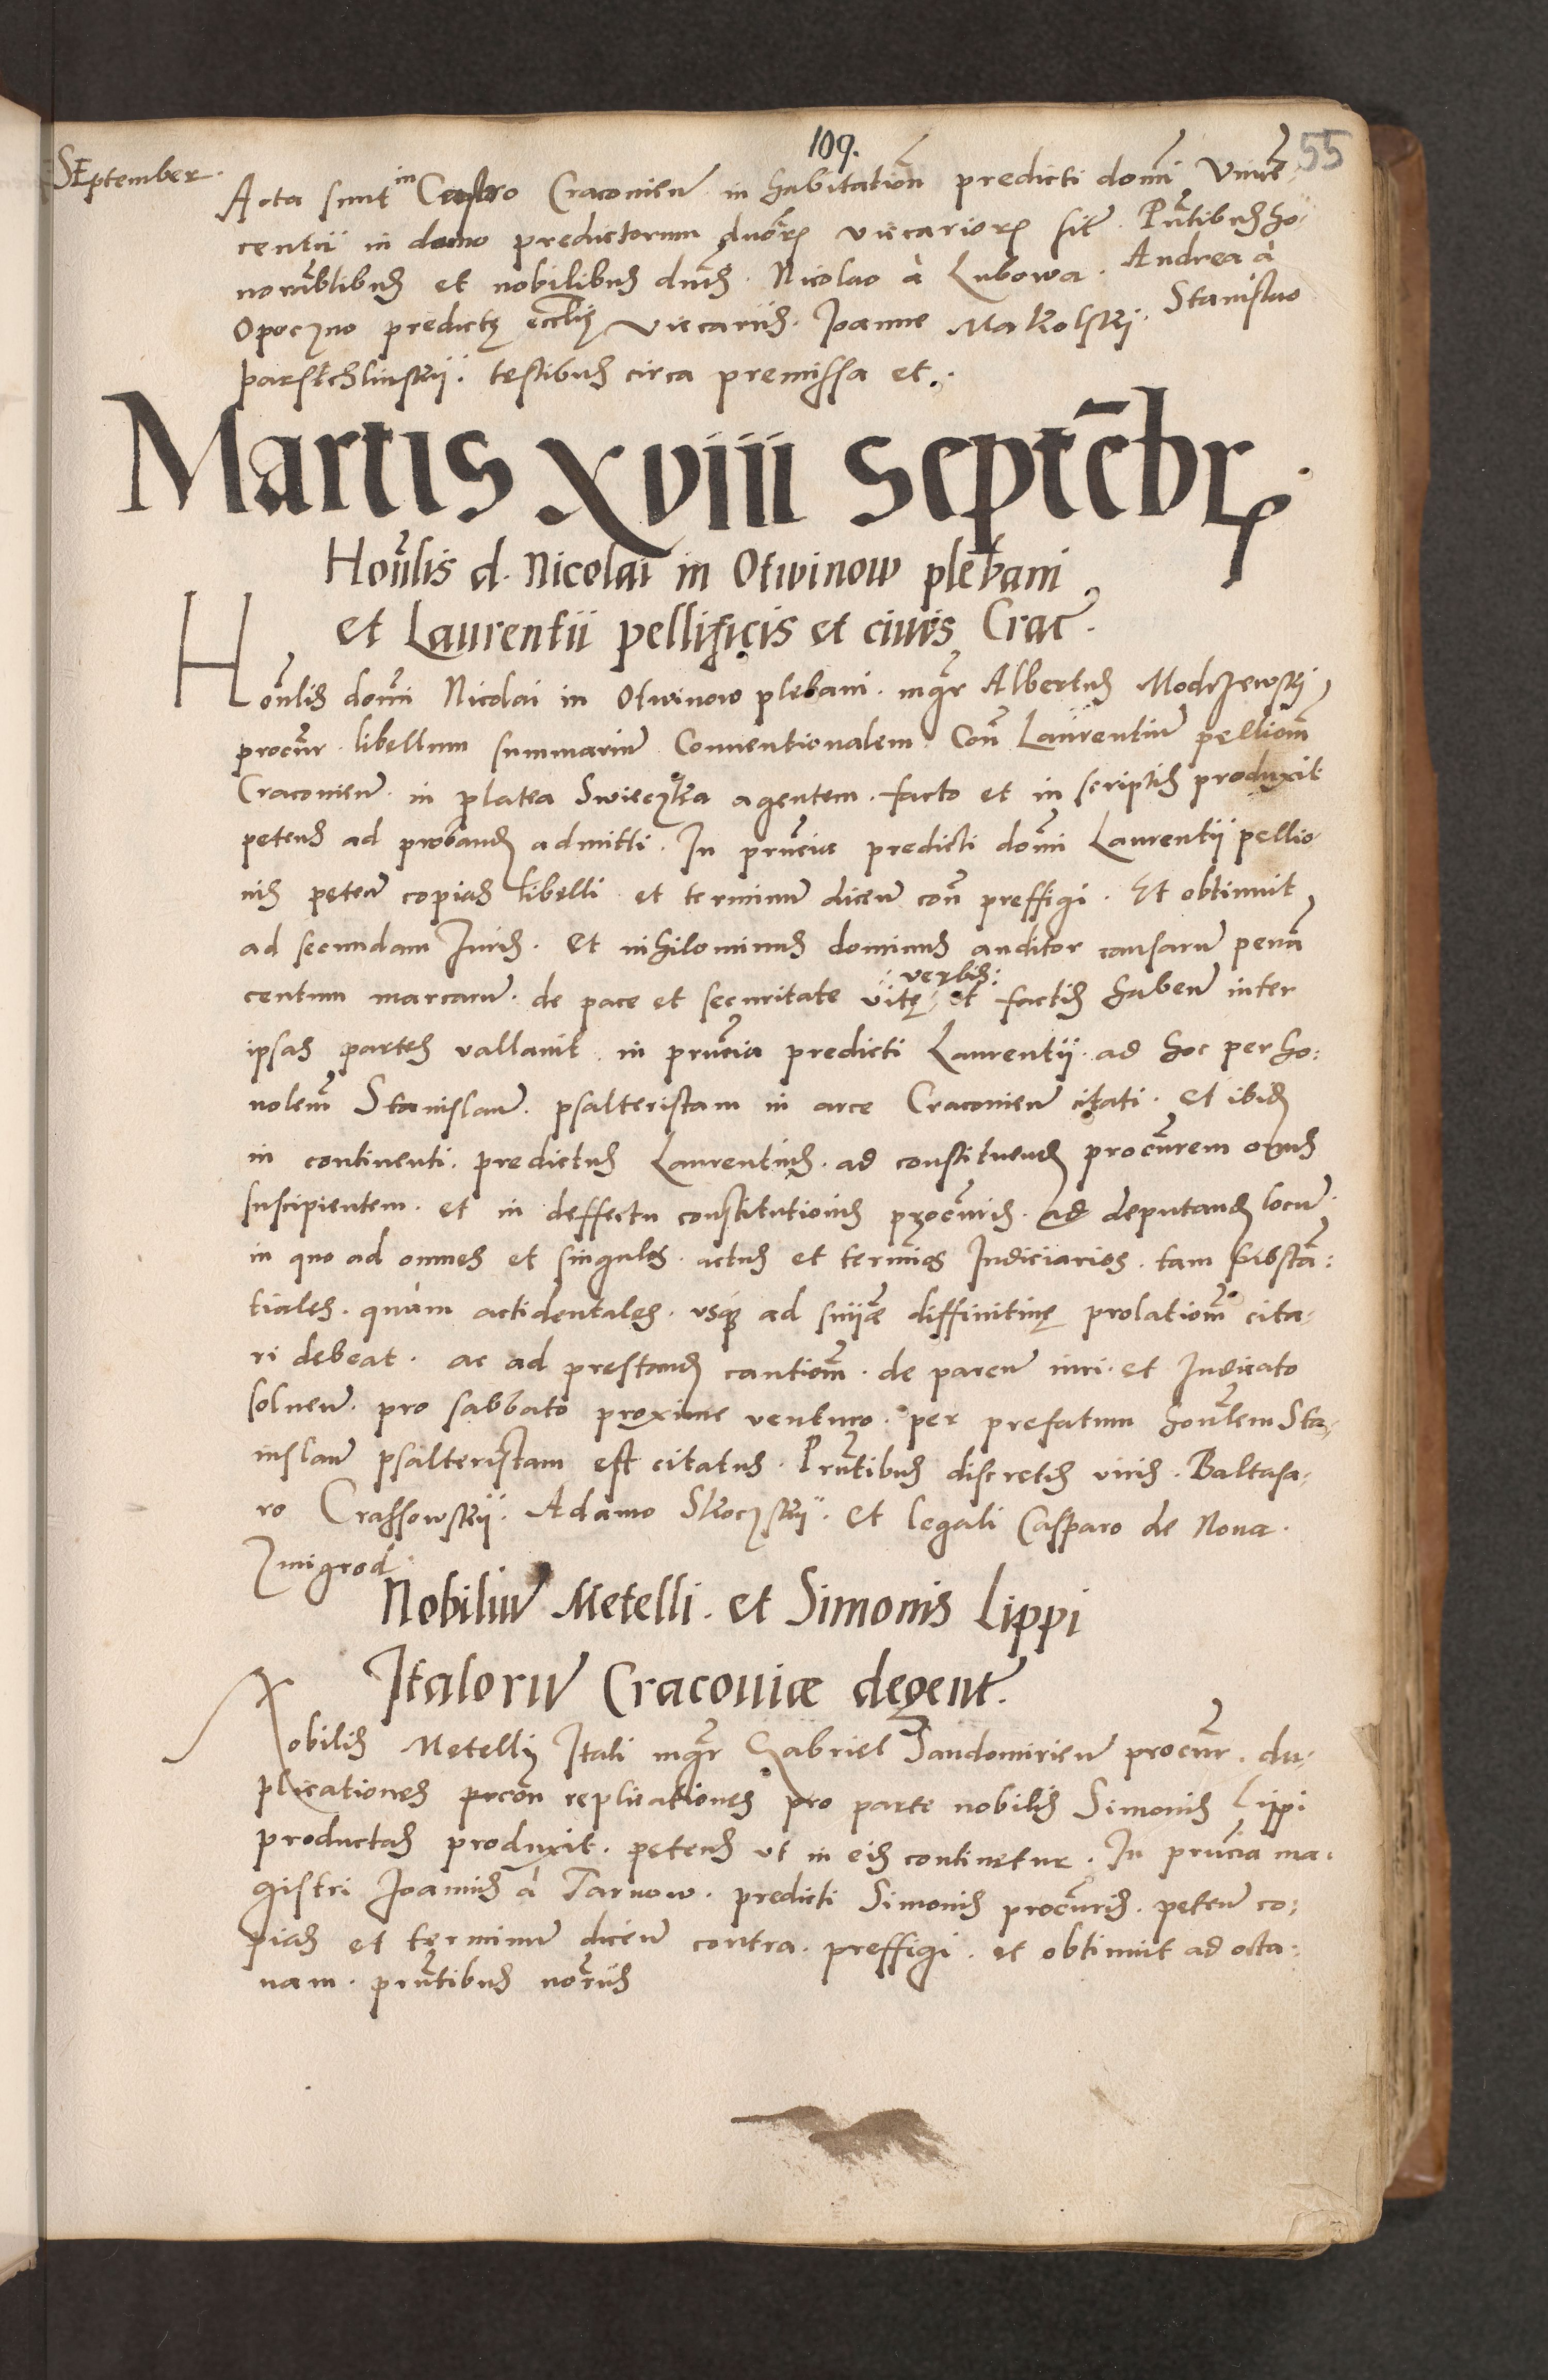 109.
55
SEptember.
Acta sunt in Castro Cracovien̄ in habitation̄ predicti domi Vincē
centii in domo predictorum duor̄ vicarior̄ sit̄. Pn̄tibus ho-
norābilibus et nobilibus dn̄is. Nicolao à Lubowa. Andrea à
Opoczno predictę eccl̄ię vicariis. Joanne Makolski. Stanislao
parskchlinskii. testibus circa premissa et.
Martis xviii Septēbr̄.
Honn̄lis d. Nicolai in Otwinow plebani
et Laurentii pellificis et civis Crac̄.
Honn̄lis domi Nicolai in Otwinow plebani. mgr̄ Albertus Modrzewski
procur̄. libellum summariū Conventionalem. Con̄ Laurentiū pelliom̄
Cracovien̄ in platea Swieczka agentem. facto et in scriptis produxit
petens ad proband̄ admitti. In pn̄tia predicti domi Laurentii pellio-
nis peten̄ copias libelli et terminū dicen̄ con̄ preffigi. Et obtinuit
ad secundam Juris. Et nihilominus dominus auditor causarū penā
centum marcarū. de pace et securitate vitę verbis: et factis haben̄ inter
ipsas partes vallavit in pn̄tia predicti Laurentii. ad hoc per ho:
nolem̄ Stanislaū. psalteristam in arce Cracovien̄ citati. Et ibid̄
in continenti. predictus Laurentius. ad constituend̄ procūrem onus
suscipientem. et in deffectu constitutionis procūris. ad deputand̄ locū
in quo ad omnes et singulos. actus et termīos Judiciarios. tam substā:
tiales. quàm actidentales. usq̨ ad sniæ diffinitivę prolationm̄ cita-
ri debeat. ac ad prestand̄ cautiom̄. de paren̄ iuri. et Judicato
solven̄. pro sabbato proxime venturo. per prefatum honn̄lem Sta-
nislaū psalteristam est citatus. Pn̄tibus discretis viris. Baltasa-
ro Crassowskii. Adamo Skoczskii. et legali Casparo de Nova.
Zmigrod.
Nobiliū Metelli. et Simonis Lippi
Italorū Cracoviæ degent̄.
Nobilis Metelli Itali mgr̄ Gabriel Sandomirien̄ procur̄. du-
plicationes prcon̄ replicationes pro parte nobilis Simonis Lippi
productas produxit. petens ut in eis continetur. In pn̄tia ma-
gistri Joannis à Tarnow. predicti Simonis procūris. peten̄ co:
pias et terminū dicen̄ contra. preffigi. et obtinuit ad octa:
vam. pn̄tibus nor̄iis